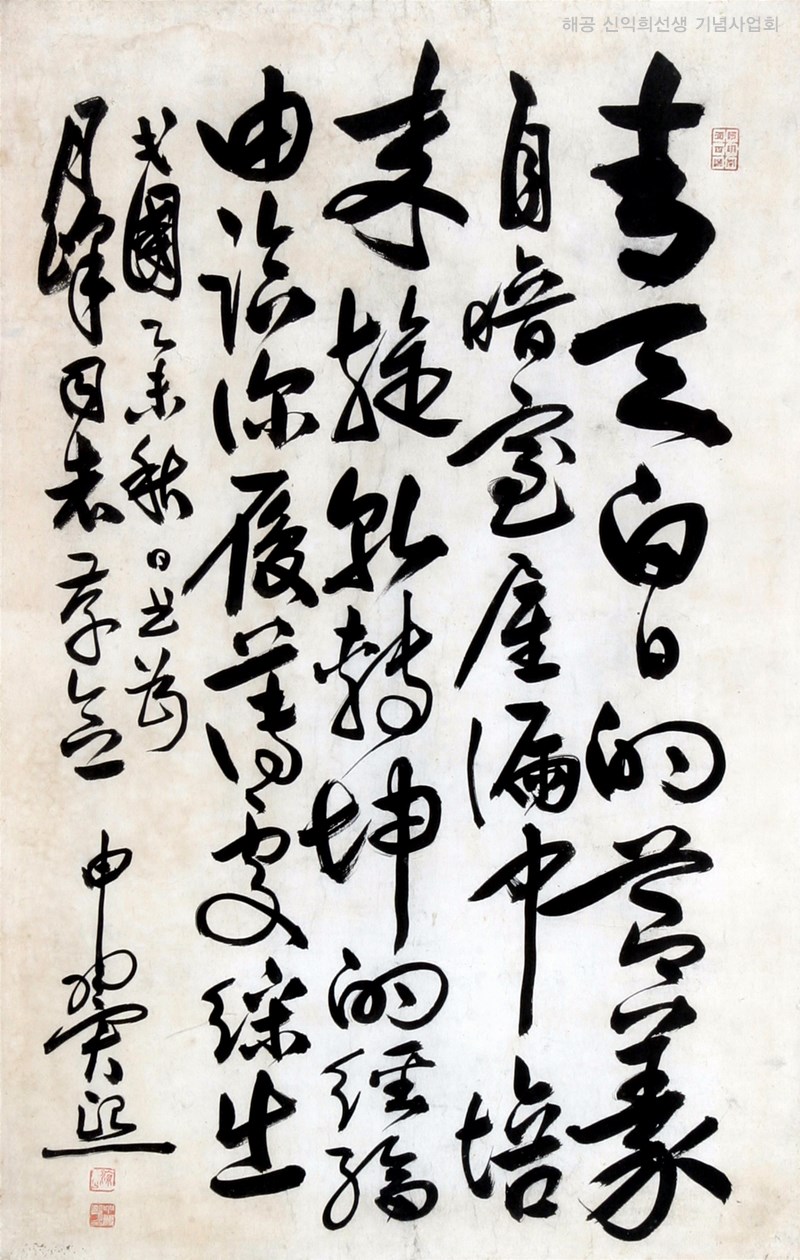 해공 신익희선생 기념사업회
青天白日的節義
自暗室屋漏中培
來旋乾轉坤的經綸
由臨深履薄處繰出
戈國乙未秋日書爲
月峯同志孝鑒
申翼熙